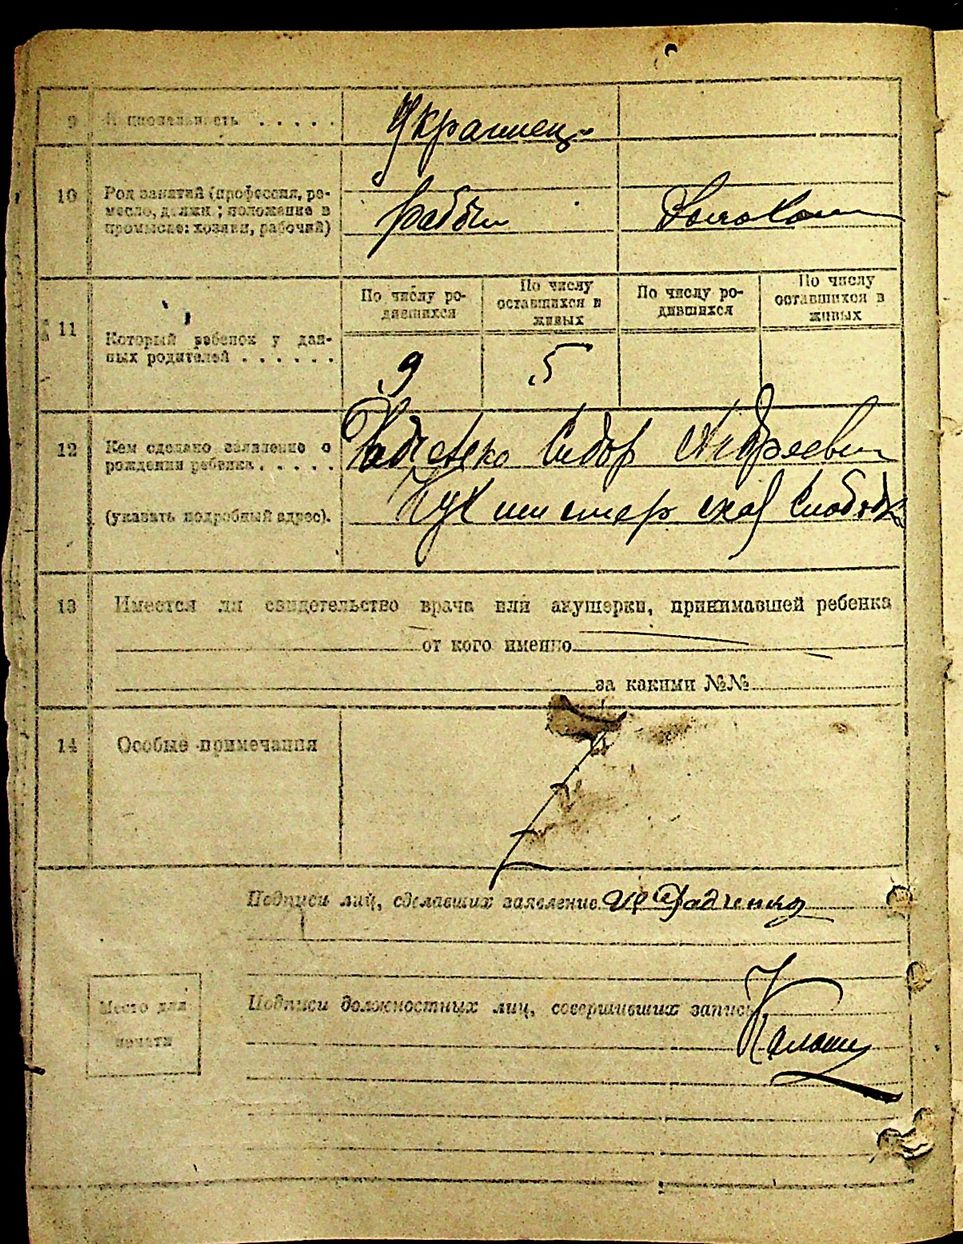 9 Национальность . . . . . Украинец
10 Род занятий (профессия, ре-
месло, должн.; положение в
промысле: хозяин, рабочий)
рабочи Домохоз
11 Который ребенок у дан-
ных родителей . . . . . .
По числу ро-
дившихся
По числу
оставшихся в
живых
По числу ро-
дившихся
По числу
оставшихся в
живых
9 5
12 Кем сделано заявление о
рождении ребенка . . . . .
(указать подробный адрес).
Радченко Сидор Андреевич
Кухмистерская Слободк
13 Имеется ли свидетельство врача или акушерки, принимавшей ребенка
от кого именно
за какими №№
14 Особые примечания
Подписи лиц, сделавших заявление Радченко
Место для
печати
Подписи должностных лиц, совершивших запись